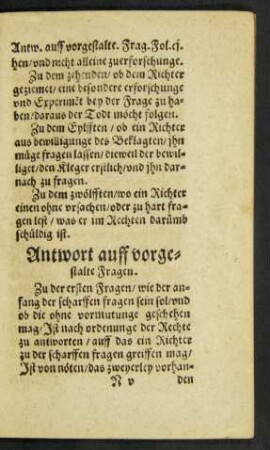 Antw. auff vorgestalte. Frag. Fol. cj.
hen/vnd nicht alleine zuerforschunge.
Zu dem zehenden/ob dem Richter
geziemet/eine besondere erforschunge
vnd Experimēt bey der Frage zu ha-
ben/daraus der Todt möcht folgen.
Zu dem Eylfften/ob ein Richter
aus bewilligunge des Beklagten/jhn
müge fragen lassen/dieweil der bewil-
liget/den Kleger erstlich/vnd jhn dar-
nach zu fragen.
Zu dem zwölfften/wo ein Richter
einen ohne vrsachen/oder zu hart fra-
gen lest/was er im Rechten darümb
schüldig ist.
Antwort auff vorge-
stalte Fragen.
Zu der ersten Fragen/wie der an-
fang der scharffen fragen sein sol/vnd
ob die ohne vormutunge geschehen
mag/Ist nach ordenunge der Rechte
zu antworten/auff das ein Richter
zu der scharffen fragen greiffen mag/
Ist von nöten/das zweyerley vorhan-
N v den